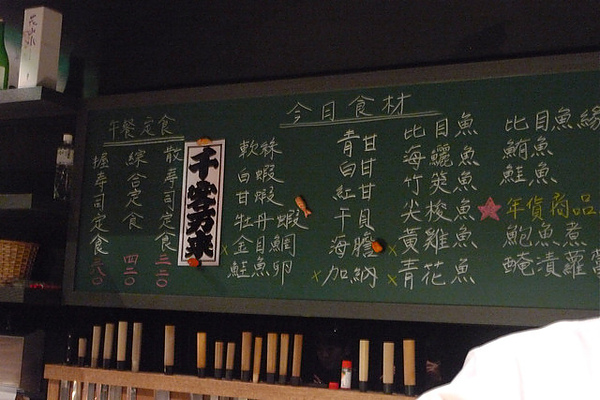 今日食材
午餐定食
散壽司定食
三二〇
綜合定食
四二〇
握壽司定食
千客万来
軟絲
白蝦
甘蝦
牡丹蝦
金目鯛
鮭魚卵
青甘
白甘
紅甘
干貝
海膽
加納
比目魚
海鱺魚
竹筴魚
尖梭魚
黃雞魚
青花魚
比目魚緣
鮪魚
鮭魚
年貨商品
鮑魚煮
醃漬蘿蔔